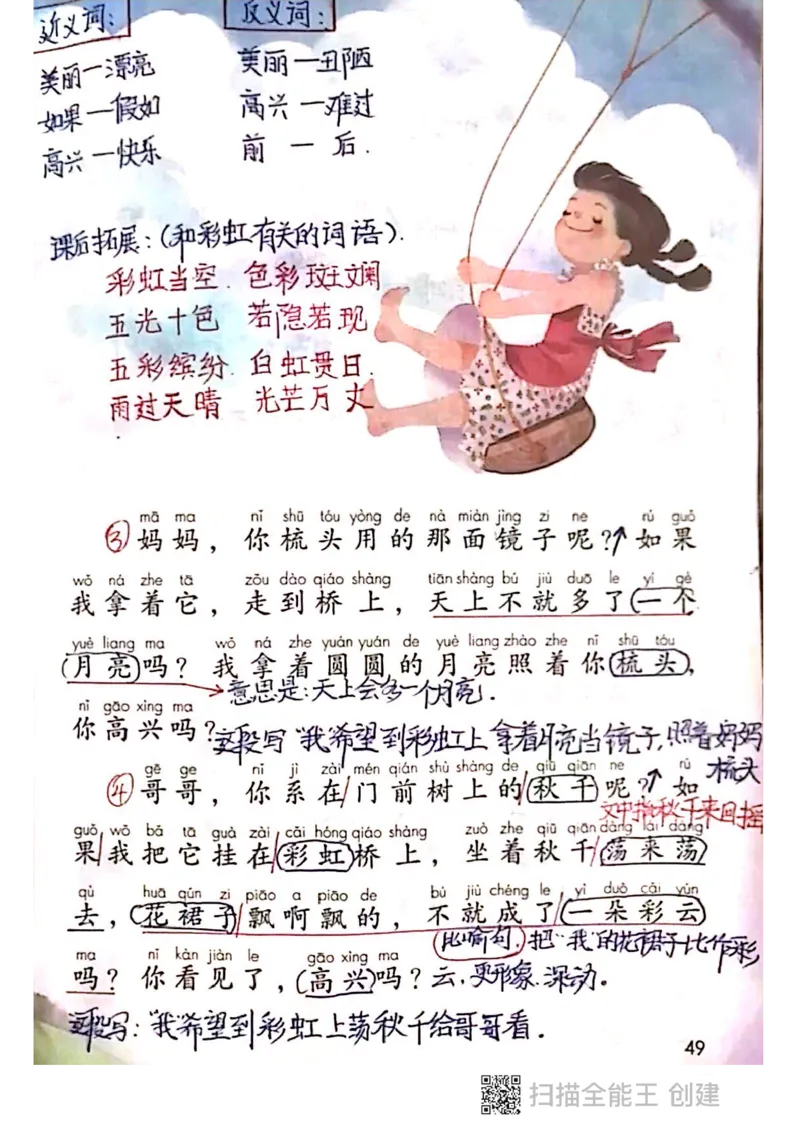 近义词：
反义词：
美丽—漂亮
美丽—丑陋
如果—假如
高兴—难过
高兴—快乐
前—后.
课后拓展：(和彩虹有关的词语).
彩虹当空 色彩斑斓
五光十色 若隐若现
五彩缤纷 白虹贯日
雨过天晴 光芒万丈
mā ma nǐ shū tóu yòng de nà miàn jìng zi ne rú guǒ
③妈妈，你梳头用的那面镜子呢？↑如果
wǒ ná zhe tā zǒu dào qiáo shàng tiān shàng bú jiù duō le yí gè
我拿着它，走到桥上，天上不就多了(一个
yuè liang ma wǒ ná zhe yuán yuán de yuè liang zhào zhe nǐ shū tóu
(月亮)吗？我拿着圆圆的月亮照着你(梳头)，
意思是：天上会多一个月亮.
nǐ gāo xìng ma
你高兴吗？
这段写"我"希望到彩虹上拿着月亮当镜子,照着妈妈
梳头
gē ge nǐ jì zài mén qián shù shàng de qiū qiān ne rú
④哥哥，你系在/门前树上的/(秋千)呢？↑如
文中指秋千来回摇
guǒ wǒ bǎ tā guà zài cǎi hóng qiáo shàng zuò zhe qiū qiān dàng lái dàng
果/我把它挂在/(彩虹)桥上，坐着秋千/(荡来荡
qù huā qún zi piāo a piāo de bú jiù chéng le yì duǒ cǎi yún
去，(花裙子/飘啊飘的，不就成了/(一朵彩云)
(比喻句).把"我"的花裙子比作彩
ma nǐ kàn jiàn le gāo xìng ma
吗？你看见了，(高兴)吗？
云,更形象.深动。
这段写："我"希望到彩虹上荡秋千给哥哥看.
49
扫描全能王 创建